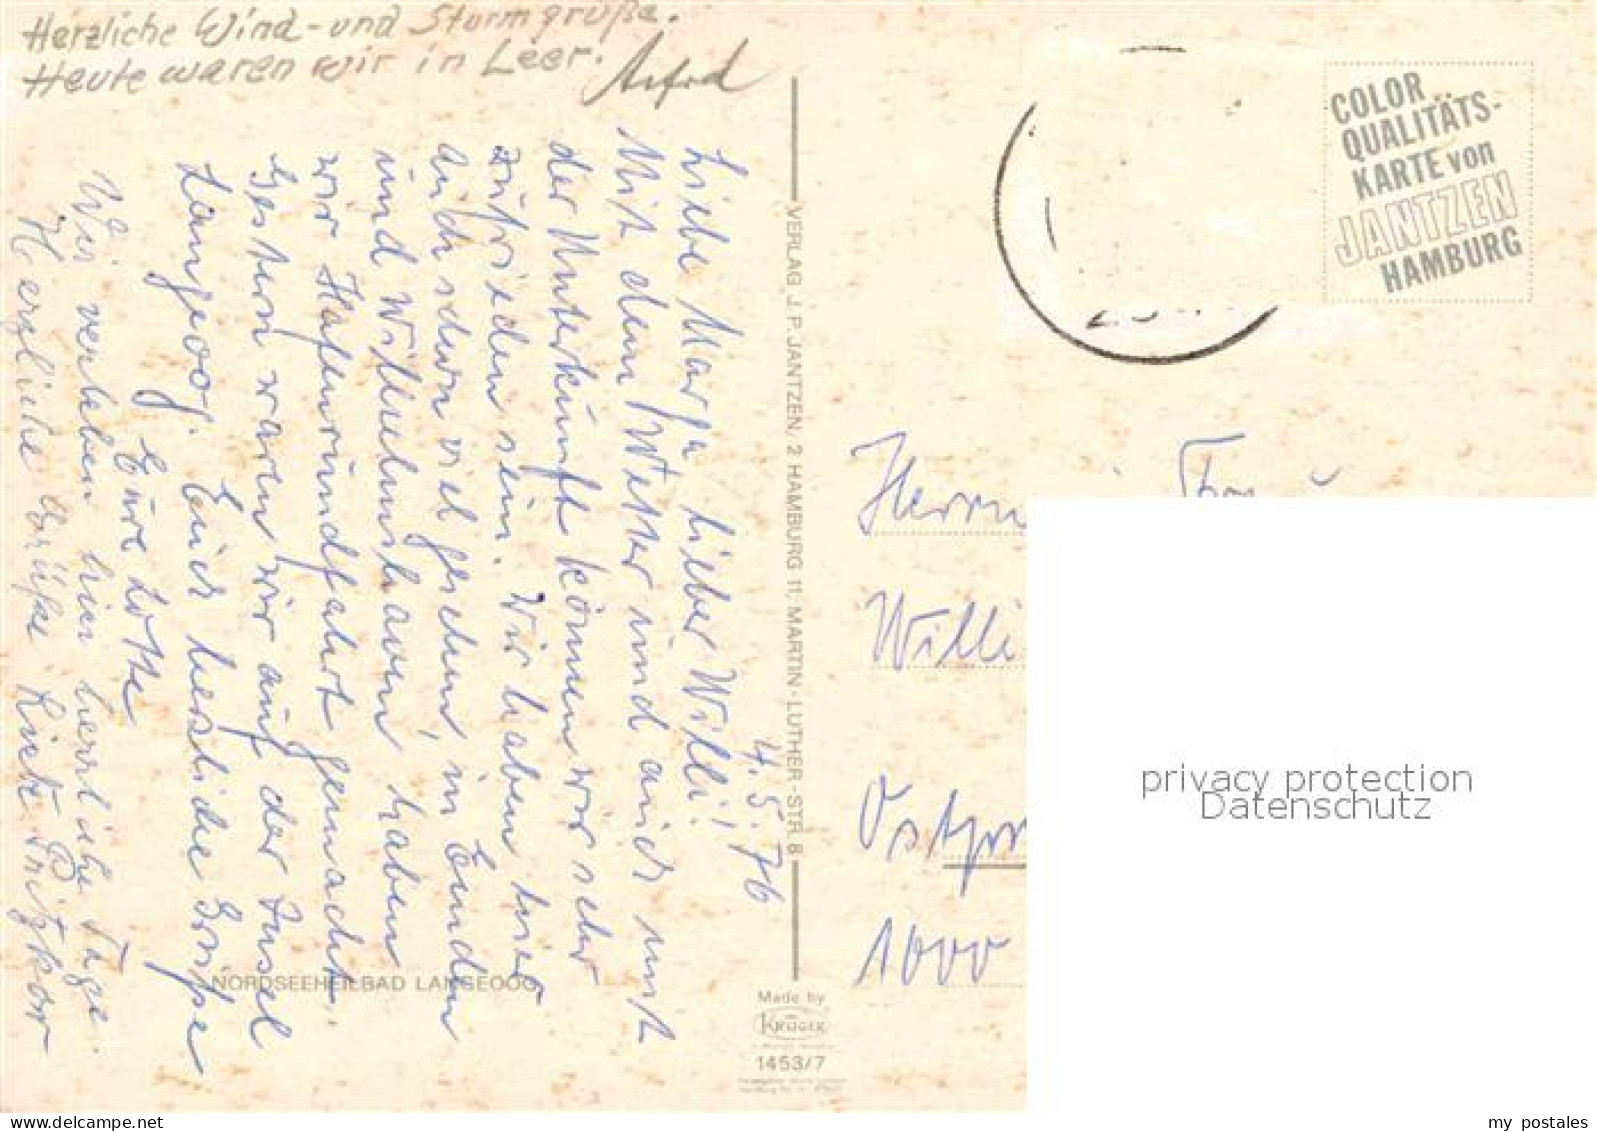 Herzliche Wind- und Sturmgrüße.
Heute waren wir in Leer.
4.5.76
Liebe Marga lieber Willi!
Mit dem Wetter und auch mit
der Unterkunft können wir sehr
zufrieden sein. Wir haben hier
auch schon viel gesehen, in Emden
und Wilhelmshaven haben
wir Hafenrundfahrt gemacht.
Gestern waren wir auf der Insel
Langeoog. Euch herzliche Grüße
Eure Lotte
Wir verleben hier herrliche Tage.
Herzliche Grüße
NORDSEEHEILBAD LANGEOOG
VERLAG J. P. JANTZEN, 2 HAMBURG 11, MARTIN-LUTHER-STR. 8
Made by
KRÜGER
1453/7
COLOR
QUALITÄTS-
KARTE von
JANTZEN
HAMBURG
Herrn
Willi
1000
privacy protection
Datenschutz
my postales